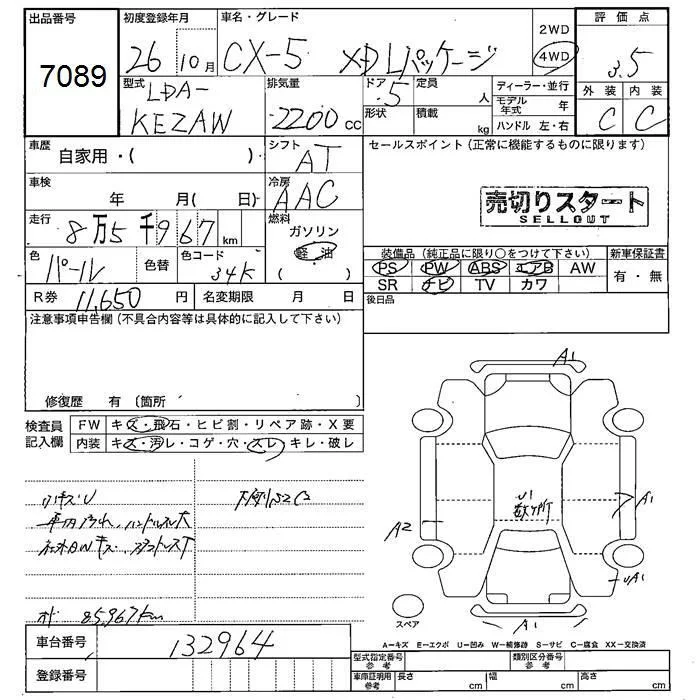 出品番号 初度登録年月 車名・グレード 2WD 評価点
7089 26 10月 CX-5 XDLパッケージ 4WD 3.5
型式 排気量 ドア 定員 ディーラー・並行 外装 内装
LDA-
KE2AW 2200cc 5 人 モデル年式 年 C C
形状 積載 kg ハンドル 左・右
車歴 自家用・( ) シフト AT セールスポイント(正常に機能するものに限ります)
車検 年 月( 日) 冷房 AAC
売切りスタート
SELLOUT
走行 8万5千967km 燃料 ガソリン
軽油
装備品(純正品に限り○をつけて下さい) 新車保証書
色 パール 色替 色コード 34K PS PW ABS エアB AW 有・無
SR ナビ TV カワ
R券 11,650円 名変期限 月 日 後日品
注意事項申告欄(不具合内容等は具体的に記入して下さい)
修復歴 有 〔箇所 〕
検査員記入欄 FW キズ・飛石・ヒビ割・リペア跡・X要
内装 キズ・汚レ・コゲ・穴・スレ・キレ・破レ
小キズU 下廻りサビ
オド 85,967km
A1
U1
数ヶ所
A1
A2
UA1
A1
スペア
A-キズ E-エクボ U-凹み W-補修跡 S-サビ C-腐食 XX-交換済
車台番号 132964
型式指定番号 参考 類別区分番号 参考
登録番号 車庫証明用 参考 長さ cm 幅 cm 高さ cm